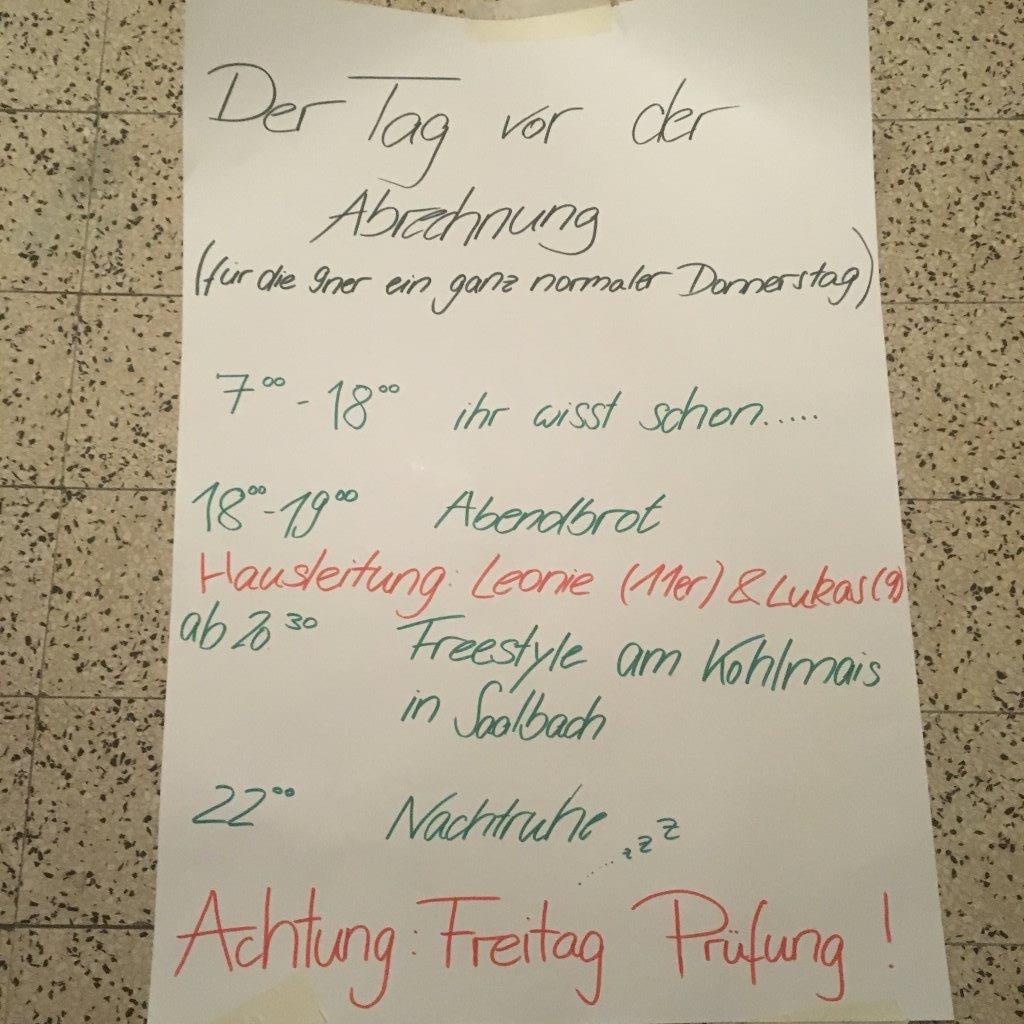 Der Tag vor der
Abrechnung
(für die 9ner ein ganz normaler Donnerstag)
7⁰⁰ - 18⁰⁰ ihr wisst schon.....
18⁰⁰-19⁰⁰ Abendbrot
Hausleitung: Leonie (11er) & Lukas(9)
ab 20³⁰ Freestyle am Kohlmais
in Saalbach
22⁰⁰ Nachtruhe ....zzz
Achtung: Freitag Prüfung !